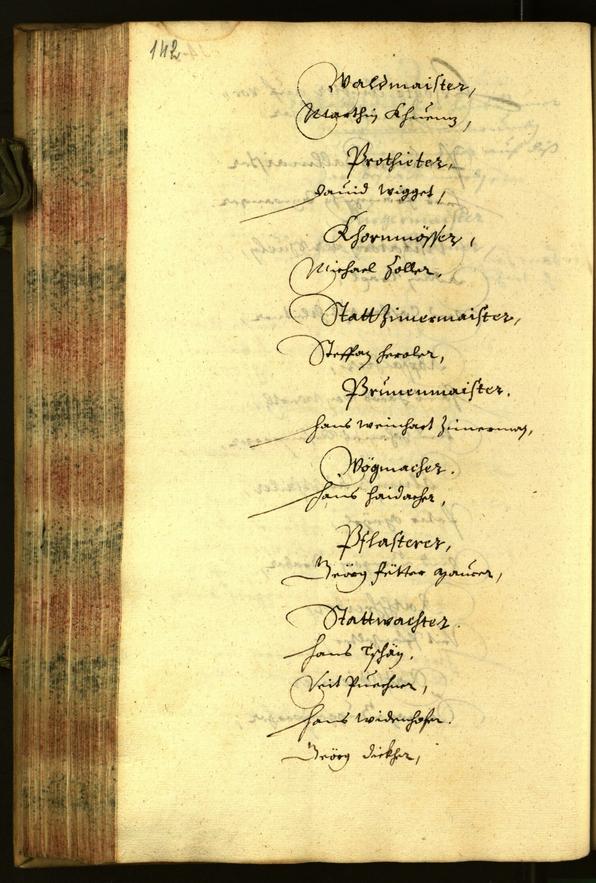 142
Waldmaister,
Marthin Khuenz,
Prothieter,
Dauid Wigget,
Khornmösser,
Michael Zoller,
Stattzimermaister,
Steffan Heroler,
Prunenmaister.
Hans Weinhart Zimerman,
Wögmacher.
Hans Haidacher,
Pflasterer,
Geörg Fütter Maurer,
Stattwachter.
Hans Tschän,
Veit Puechner,
Hans Widenhofer.
Geörg Dickher,